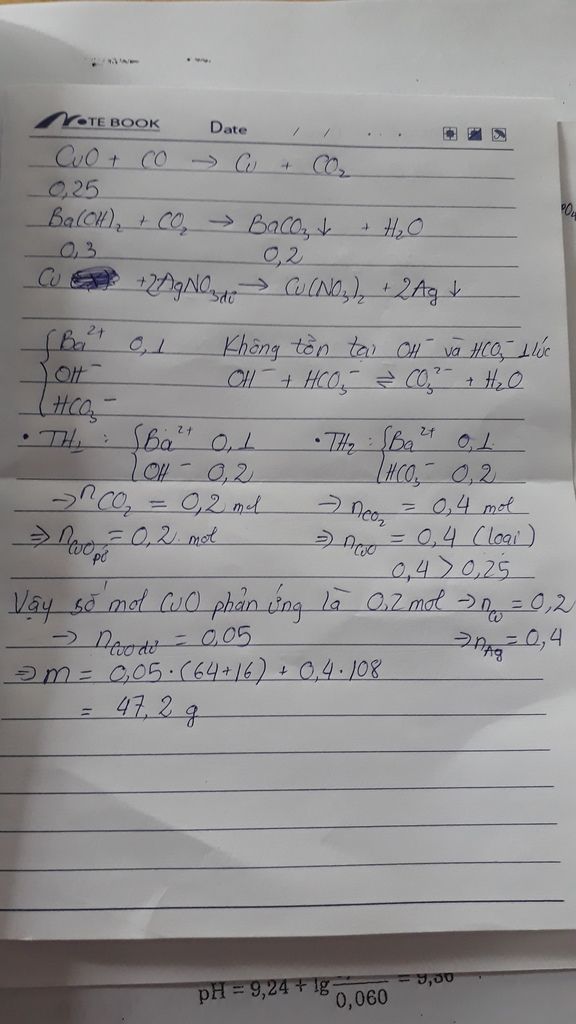 NOTE BOOK Date / / . . .
CuO + CO → Cu + CO₂
0,25
Ba(OH)₂ + CO₂ → BaCO₃↓ + H₂O
0,3 0,2
Cu +2AgNO₃dư → Cu(NO₃)₂ + 2Ag ↓
{Ba²⁺ 0,1 Không tồn tại OH⁻ và HCO₃⁻ 1 lúc
OH⁻ OH⁻ + HCO₃⁻ ⇌ CO₃²⁻ + H₂O
HCO₃⁻
• TH₁ : {Ba²⁺ 0,1 • TH₂ : {Ba²⁺ 0,1
OH⁻ 0,2 HCO₃⁻ 0,2
→ nCO₂ = 0,2 mol → nCO₂ = 0,4 mol
⇒ nCuO pứ = 0,2 mol ⇒ nCuO = 0,4 (loại)
0,4 > 0,25
Vậy số mol CuO phản ứng là 0,2 mol → nCu = 0,2
→ nCuO dư = 0,05 ⇒ nAg = 0,4
⇒ m = 0,05 . (64+16) + 0,4 . 108
= 47,2 g
pH = 9,24 + lg / 0,060 = 9,36